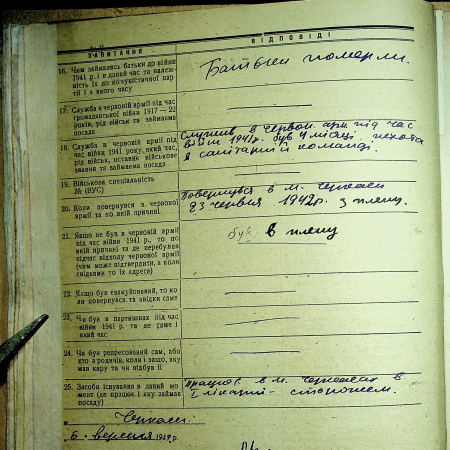 ЗАПИТАННЯ
ВІДПОВІДІ
16. Чим займались батьки до війни
1941 р. і в даний час та належ-
ність їх до комуністичної пар-
тії і з якого часу
Батьки померли.
17. Служба в червоній армії під час
громадянської війни 1917—22
років, рід військ та займаєма
посада
18. Служба в червоній армії під
час війни 1941 року, який час,
рід військ, останнє військове
звання та займаєма посада
Служив в червон. арм. під час
війни 1941р. був 4 місяці. пехота
в санітарній команді.
19. Військова спеціальність
№ (ВУС)
20. Коли повернувся з червоної
армії та по якій причині
Повернувся в м. Черкаси
23 червня 1942р. з плену.
21. Якщо не був в червоній армії
під час війни 1941 р., то по
якій причині та де перебував
підчас відходу червоної армії
(чим може підтвердити, а коли
свідками то їх адреса)
був в плену
22. Якщо був евакуйований, то ко-
ли повернувся та звідки саме
23. Чи був в партизанах під час
війни 1941 р. та де саме і
який час
24. Чи був репресований сам, або
хто з родичів, коли і защо, яку
мав кару та чи відбув її
25. Засоби існування в даний мо-
мент (де працює і яку займає
посаду)
Працює в м. Черкасах в
I лікарні - сторожем.
м. Черкаси
"6" вересня 194 р.